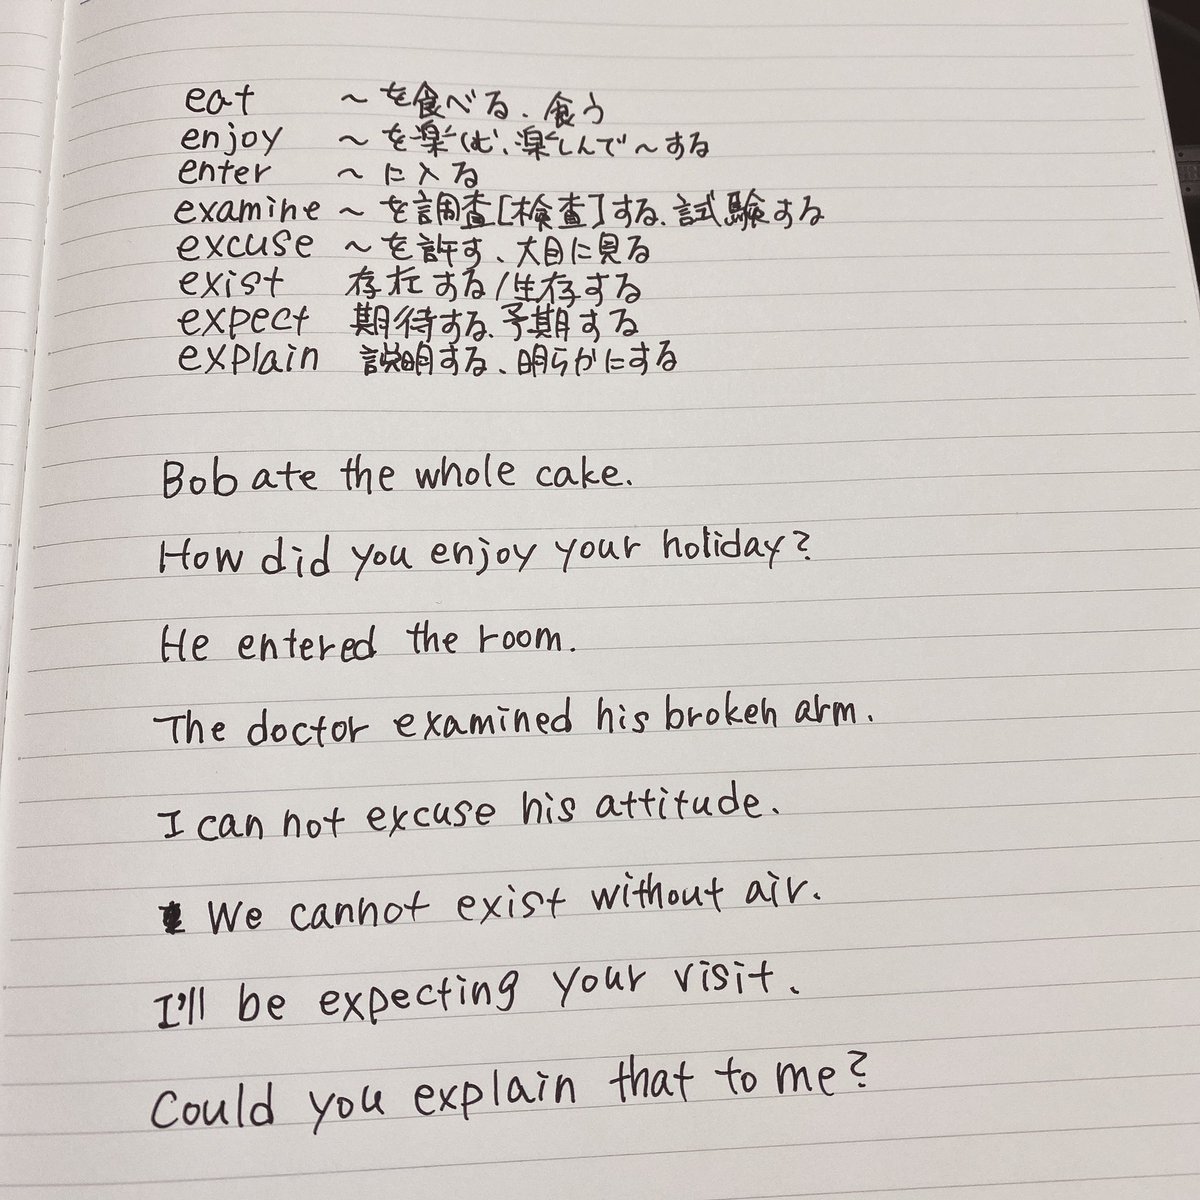 eat ~を食べる、食う
enjoy ~を楽しむ、楽しんで~する
enter ~に入る
examine ~を調査[検査]する、試験する
excuse ~を許す、大目に見る
exist 存在する/生存する
expect 期待する、予期する
explain 説明する、明らかにする
Bob ate the whole cake.
How did you enjoy your holiday?
He entered the room.
The doctor examined his broken arm.
I can not excuse his attitude.
We cannot exist without air.
I'll be expecting your visit.
Could you explain that to me?